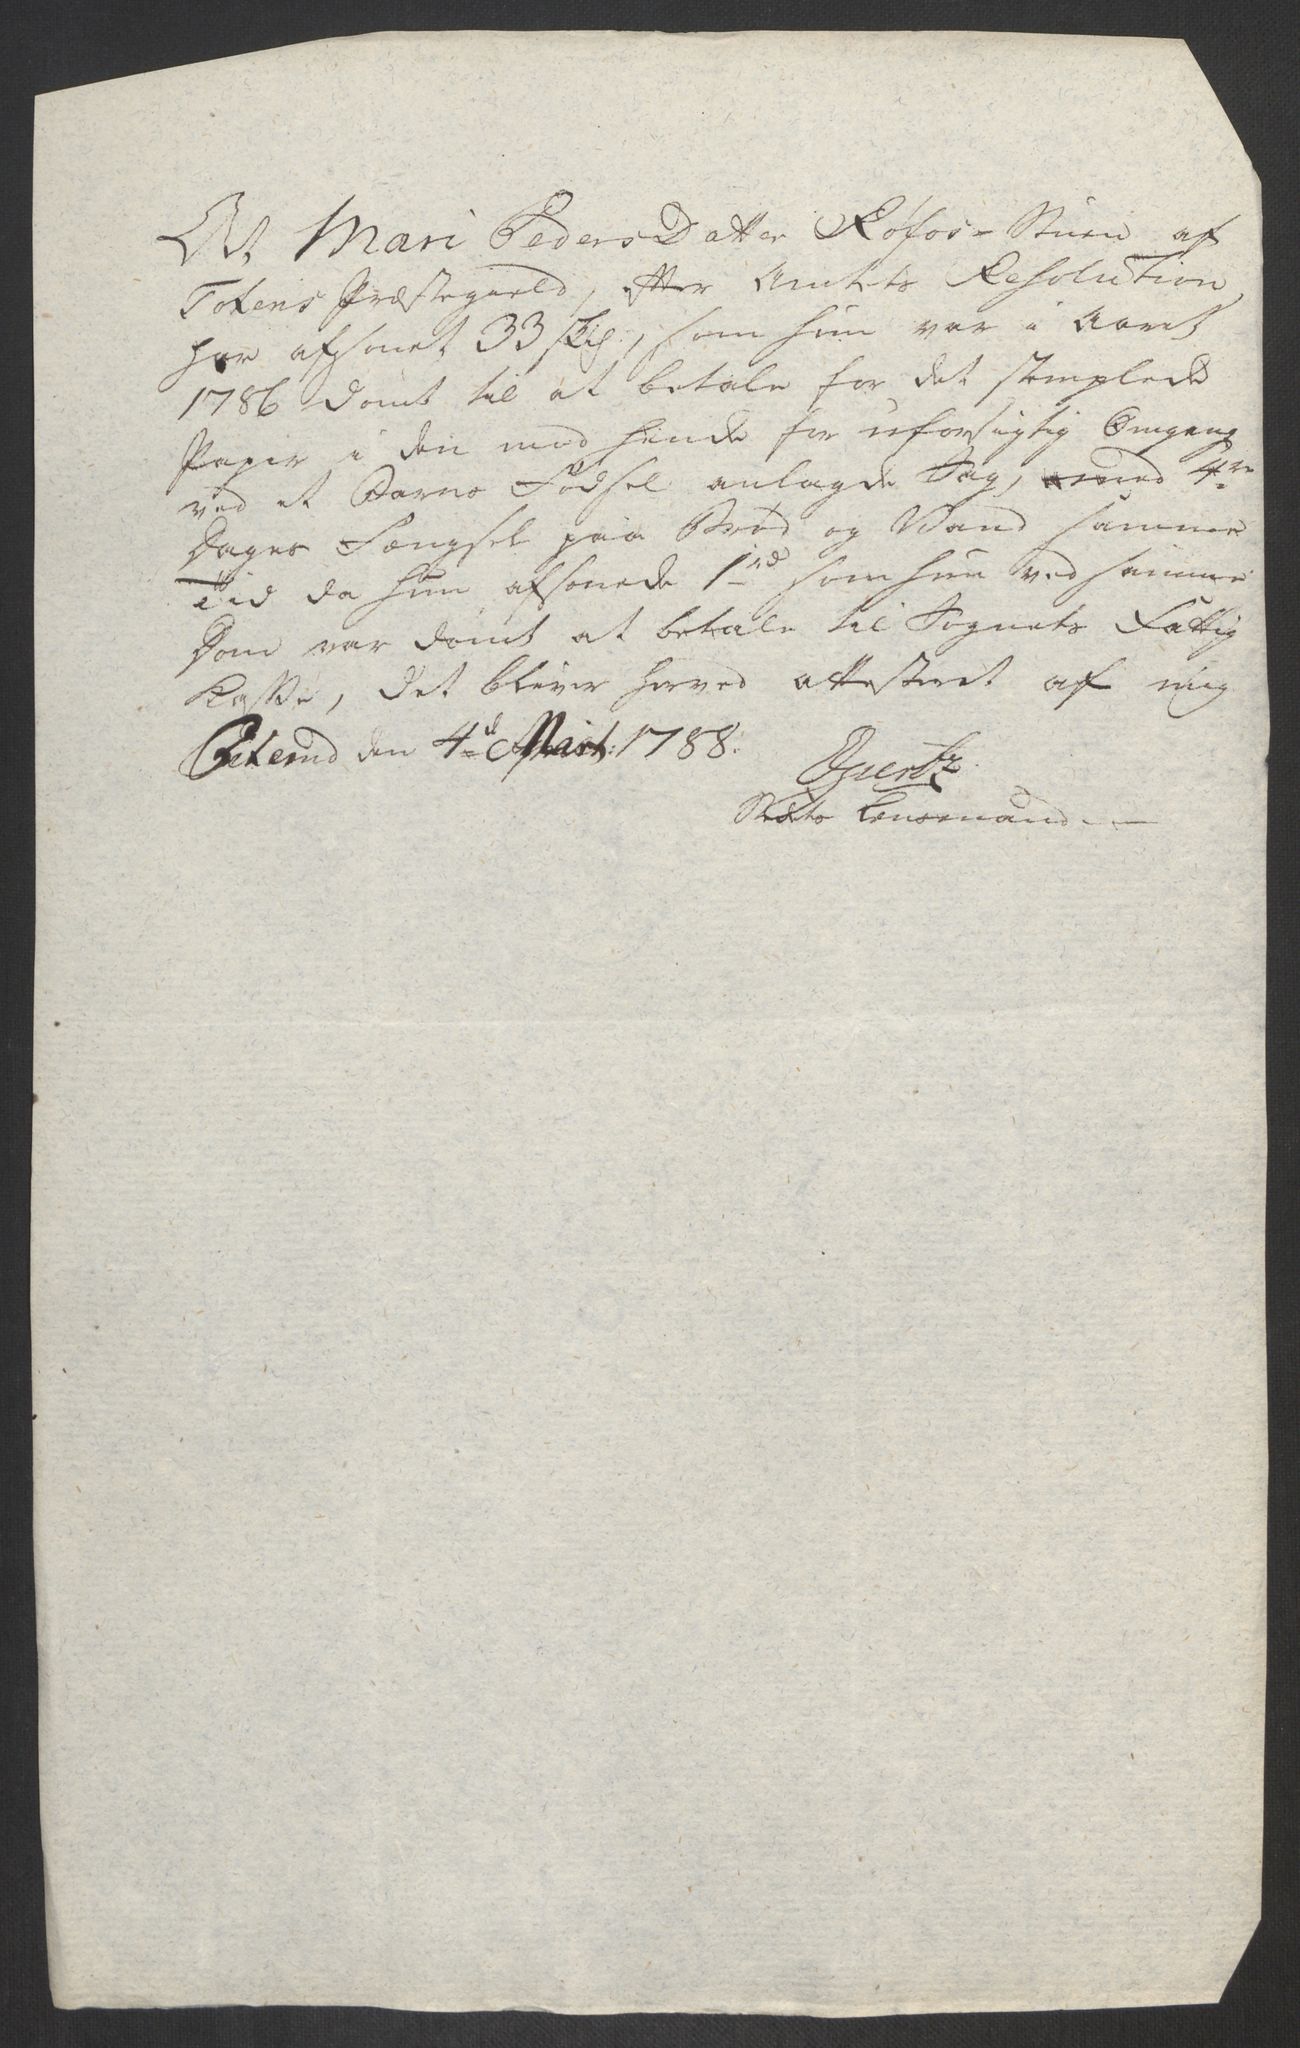 At Mari PedersDatter Røfos-Stuen af
Totens Præstegield, efter Amtets Resolution,
har afsonet 33 skill:, som hun var i Aaret
1786 dømt til at betale for det stemplede
Papir i den mod hende for uforsigtig Omgang
ved et Barns Fødsel anlagde Sag, med 4re
Dages Fængsel paa Brød og Vand samme
Tid da hun afsonede 1rd som hun ved samme
Dom var dømt at betale til Sognets Fattig
Kasse, det bliver herved attesteret af mig
den 4de Mart: 1788.
Lensmand